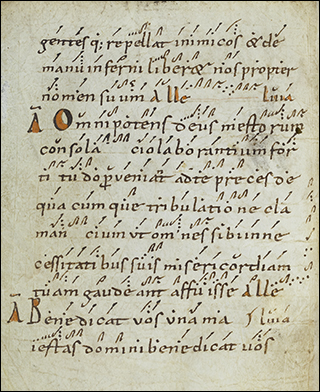 gentes q; repellat inimicos & de
manu inferni liber& nos propter
nomen suum Alle luia
A Omnipotens deus mestorum
consola cio laborantium for
ti tu do perveniat ad te preces de
qua cum que tribulatio ne cla
man cium ut om nes sibi inne
cessitatibus suis misericordiam
tuam gaudeant affuisse Alle
A Bene dicat vos una mia luia
iestas domini bene dicat vos